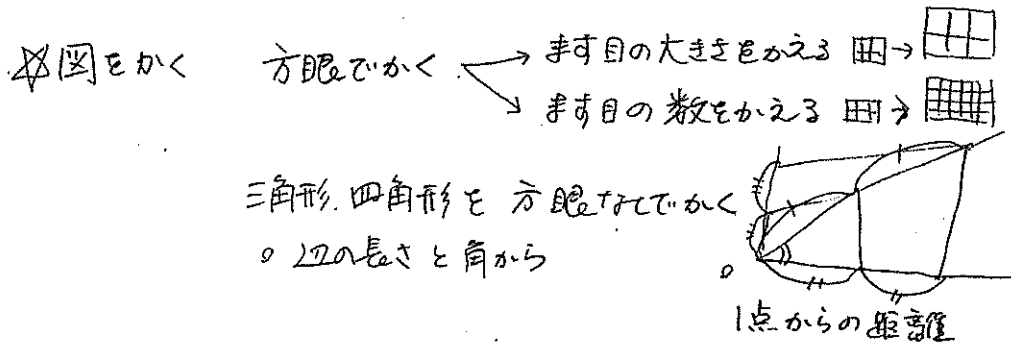 ☆図をかく 方眼でかく → ます目の大きさをかえる →
→ ます目の数をかえる →
三角形、四角形を方眼なしでかく
○ 辺の長さと角から
○ 1点からの距離